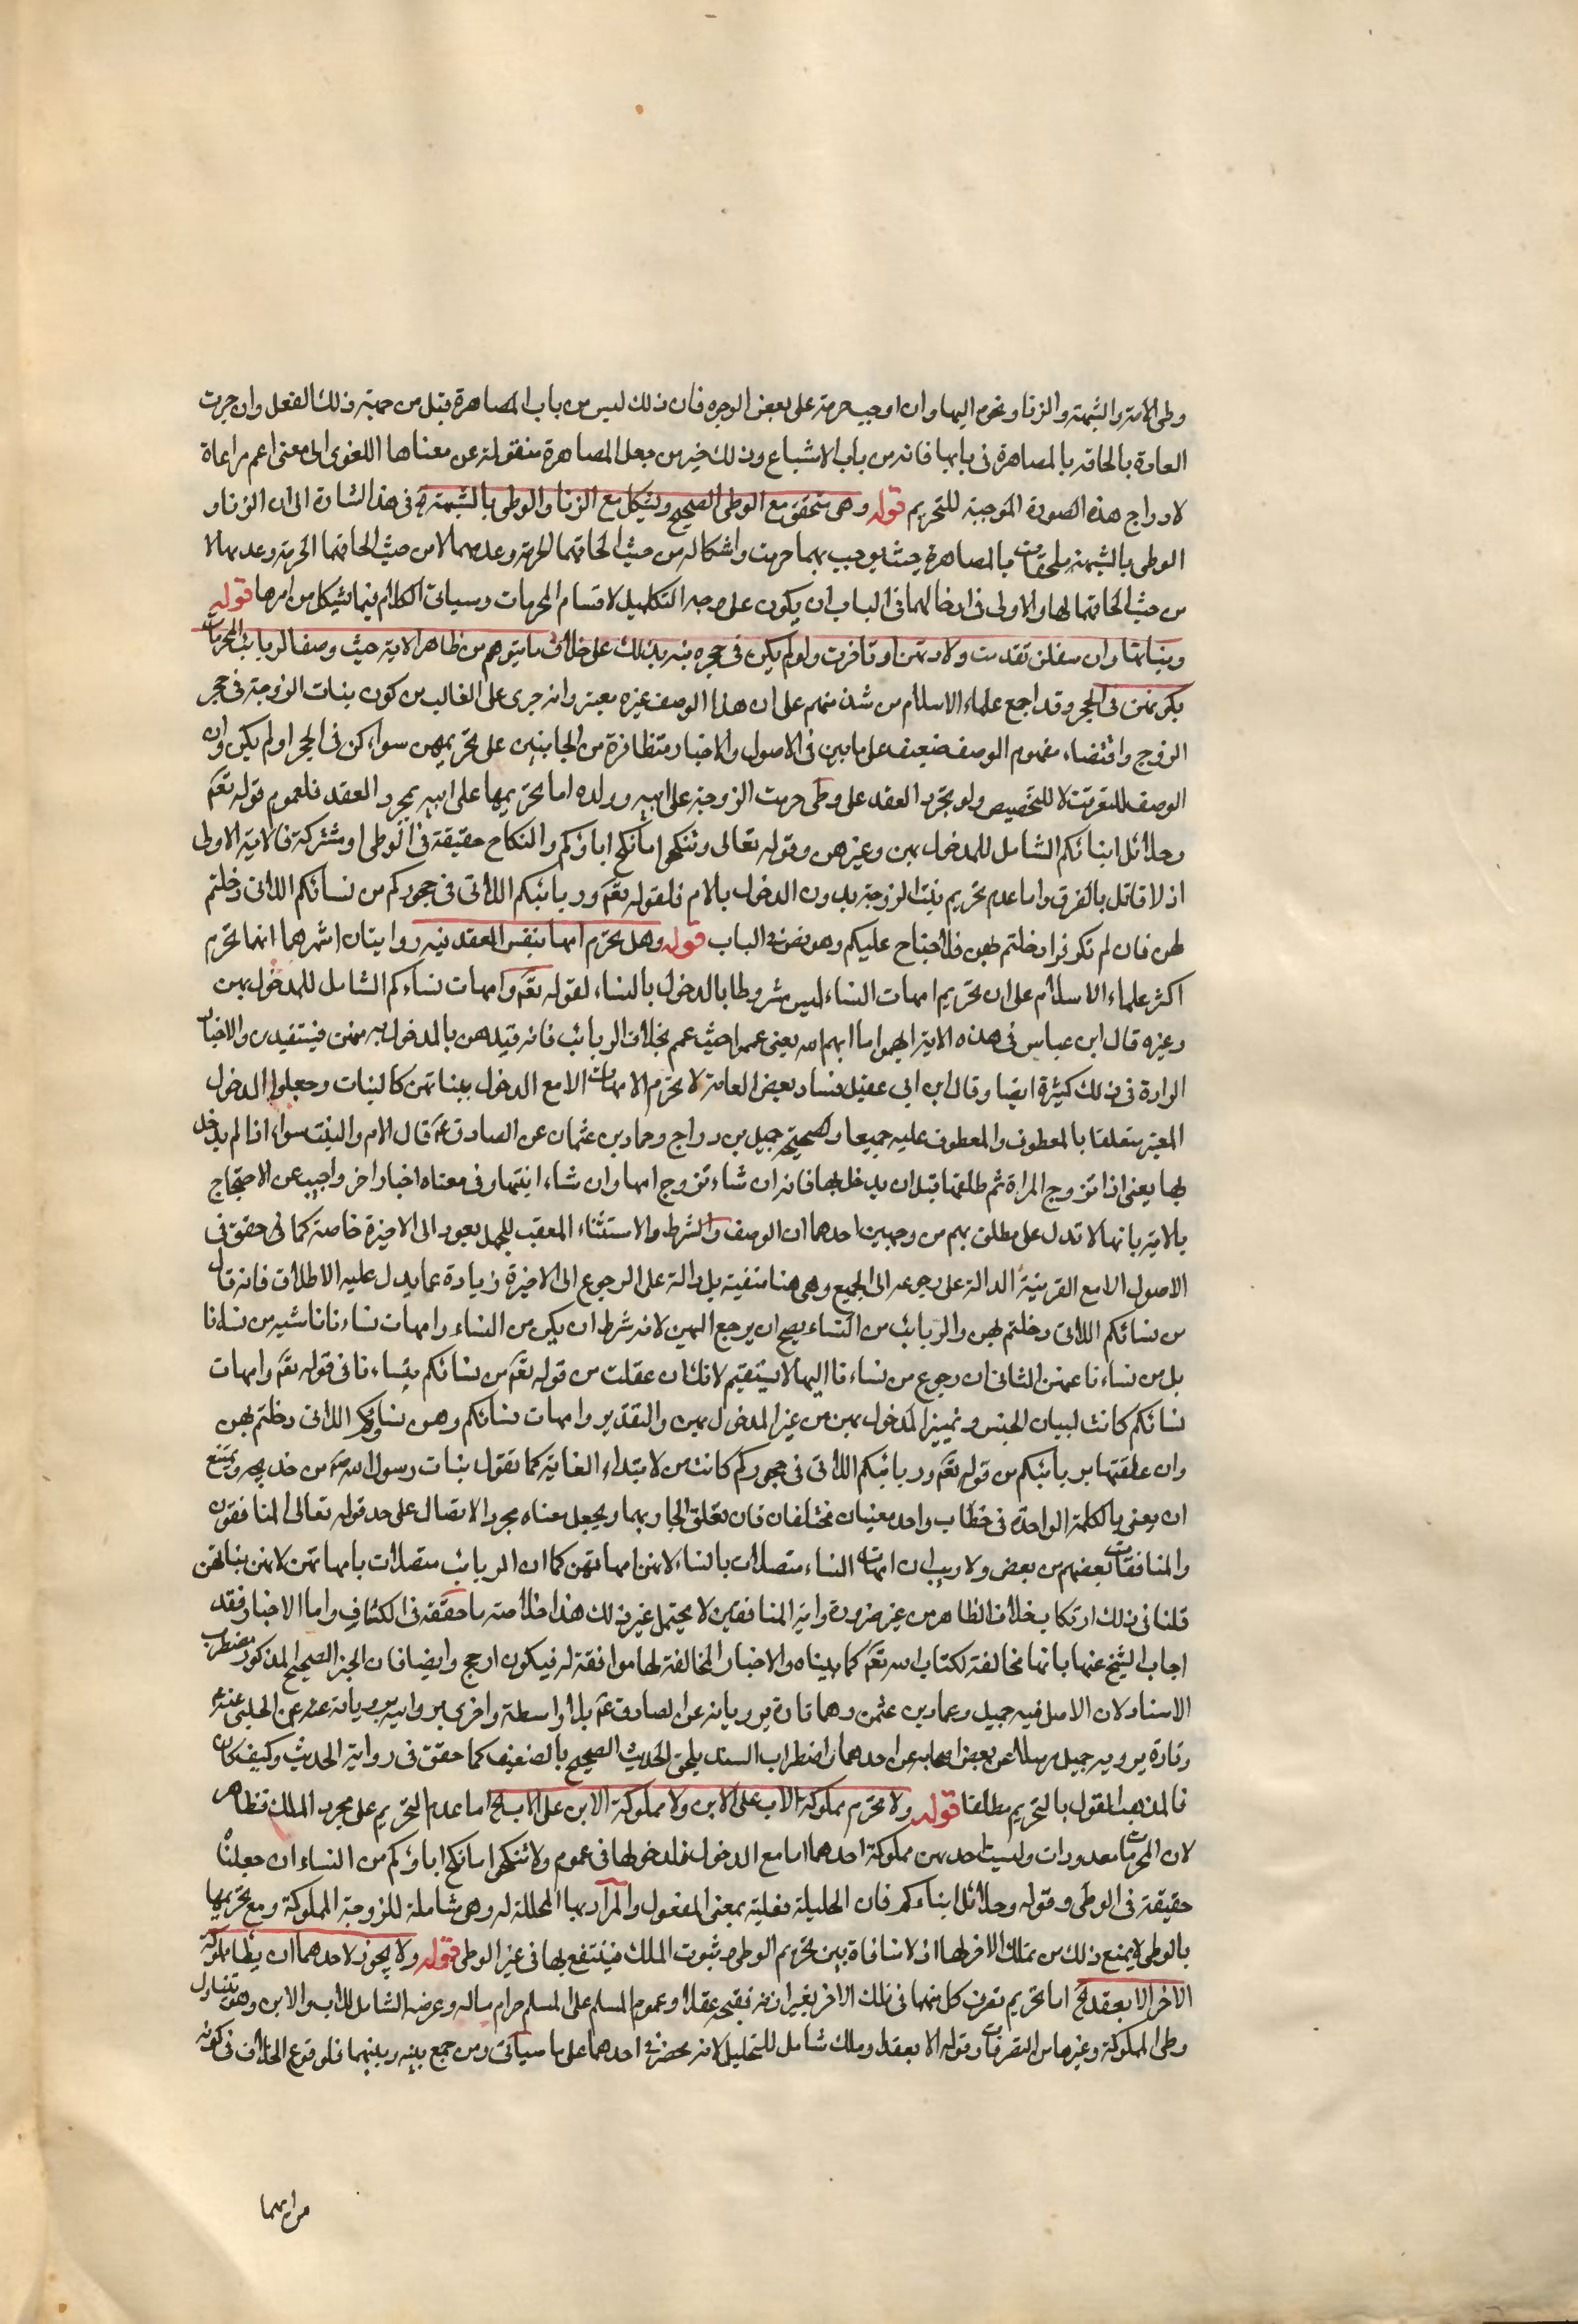 وطى الامة والشبهة والزنا ونحوه اليها وان اوجب حرمة على بعض الوجوه فان ذلك ليس من باب المصاهرة بتل من جهة ذلك الفعل وان جرت
العادة بالحاقه بالمصاهرة فى بابها فانه من باب الاشباع وذلك خير من جعل المصاهرة منقولة عن معناها اللغوى الى معنى اعم مراعاة
لادراج هذه الصورة الموجبة للتحريم قوله وهى يتحقق مع الوطى الصحيح ويشكل مع الزنا والوطى بالشبهة فى هذا اشارة الى ان الزنا و
الوطى بالشبهة ملحقان بالمصاهرة حيث يوجب بهما حرمت واشكاله من حيث الحاقهما الحرمة وعدمهما لا من حيث الحاقهما الحرمة وعدمها لا
من حيث الحاقهما لها والاولى فى ادخالهما فى الباب ان يكون على وجه التكميل لاقسام المحرمات وسياتى الكلام فيما يشكل من امرها قوله
وبناتها وان سفلن تقدمت ولادتهن او تاخرت ولو لم يكن فى حجره نبه بذلك على خلاف ما يتوهم من ظاهر الاية حيث وصف الربائب المحرمات
بكونهن فى الحجر وقد اجمع علماء الاسلام من شذ منهم على ان هذا الوصف غير معتبر وانه جرى على الغالب من كون بنات الزوجة فى حجر
الزوج واقتضاء مفهوم الوصف ضعيف على ما بين فى الاصول والاخبار متظافرة من الجانبين على تحريمهن سواء كن فى الحجر او لم يكن وان
الوصف للتعريف لا للتخصيص ولو تجرد العقد على وطى حرمت الزوجة على ابيه وولده اما تحريمها على ابيه بمجرد العقد فلعموم قوله تعم
وحلائل ابنائكم الشامل للمدخول بهن وغيرهن وقوله تعالى وتنكحوا ما نكح اباؤكم والنكاح حقيقة فى الوطى او مشتركة فالاية الاولى
اذ لا قائل بالفرق واما عدم تحريم بنت الزوجة بدون الدخول بالام فلقوله تعم وربائبكم اللاتى فى حجوركم من نسائكم اللاتى دخلتم
لهن فان لم تكونوا دخلتم بهن فلا جناح عليكم وهو نص فى الباب قوله وهل تحرم امها بنفس العقد فيه روايتان اشهرهما انها تحرم
اكثر علماء الاسلام على ان تحريم امهات النساء ليس مشروطا بالدخول بالنساء لقوله تعم وامهات نساءكم الشامل للمدخول بهن
وغيره قال ابن عباس فى هذه الاية ابهموا ما ابهم الله يعنى عمموا حيث عمم بخلاف الربائب فانه قيدهن بالمدخول بهن فيتقيدن والاخبار
الوارة فى ذلك كثيرة ايضا وقال ابن ابى عقيل منا وبعض العامة لا تحرم الامهات الا مع الدخول ببناتهن كالبنات وجعلوا الدخول
المعتبر متعلقا بالمعطوف والمعطوف عليه جميعا وصحيحة جميل بن دراج وحماد بن عثمان عن الصادق عم قال الام والبنت سواء اذا لم يدخل
بها يعنى اذا تزوج المراة ثم طلقها قبل ان يدخل بها فانه ان شاء تزوج امها وان شاء ابنتها وفى معناه اخبار اخر واجيب عن الاحتجاج
بالاية بانها لا تدل على مطلق بهم من وجهين احدهما ان الوصف والشرط والاستثناء المعقب للجمل يعود الى الاخيرة خاصة كما لى حقق فى
الاصول الا مع القرينة الدالة على رجوعه الى الجميع وهى هنا منتفية بل دالة على الرجوع الى الاخيرة زيادة عما يدل عليه الاطلاق فانه قال
من نسائكم اللاتى دخلتم بهن والربائب من النساء يصح ان يرجع اليهن لانه شرط ان يكن من النساء وامهات نساءنا ناشيه من نساءنا
بل من نساءنا عنهن الثانى ان رجوع من نساءنا اليها لا يستقيم لانك ان عقلت من قوله تعم من نسائكم بنساءنا فى قوله تعم وامهات
نسائكم كانت لبيان الجنس وتمييز المدخول بهن من غير المدخول بهن والتقدير وامهات نسائكم وهن نساؤكم اللاتى دخلتم بهن
وان علقتها بربائبكم من قوله تعم وربائبكم اللاتى فى حجوركم كانت من لابتداء الغاية كما تقول بنات رسول الله ص من خديجه ويمتنع
ان يعنى بالكلمة الواحدة فى خطاب واحد معنيان مختلفان فان تعلق الجار بهما ويجعل معناه مجرد الاتصال على حد قوله تعالى المنافقون
والمنافقات بعضهم من بعض ولا ريب ان امهات النساء متصلات بالنساء لانهن امهاتهن كما ان الربائب متصلات بامهاتهن لانهن بناتهن
قلنا فى ذلك ارتكاب خلاف الظاهر من غير ضرورة واية المنافقين لا يحتمل غير ذلك هذا خلاصة ما حققه فى الكشاف واما الاخبار فقد
اجاب الشيخ عنها بانها مخالفة لكتاب الله تعم كما بيناه والاخبار المخالفة لها موافقة له فيكون ارجح وايضا فان الخبر الصحيح المذكور مضطرب
الاسناد لان الاصل فيه جميل وحماد بن عثمن وهما تارة يرويانه عن الصادق عم بلا واسطة واخرى يرويانه عنه عن الحلبى عنه عم
وتارة يرويه جميل مرسلا عن بعض اصحابه عن احدهما واضطراب السند يلحق الحديث الصحيح بالضعيف كما حقق فى رواية الحديث وكيف كان
فالمذهب القول بالتحريم مطلقا قوله ولا تحرم مملوكة الاب على الابن ولا مملوكة الابن على الاب الخ اما عدم التحريم على مجرد الملك فظاهر
لان المحرمات معدودات وليست احديهن مملوكة احدهما اما مع الدخول فلدخولها فى عموم ولا تنكحوا ما نكح اباؤكم من النساء ان جعلناه
حقيقة فى الوطى وقوله وحلائل ابناءكم فان الحليلة فعلية بمعنى المفعول والمراد بها المحللة له وهى شاملة للزوجة المملوكة ومع تحريمها
بالوطى لا يمنع ذلك من تملك الاخر لها اذ لا منافاة بين تحريم الوطى وثبوت الملك فينتفع بها فى غير الوطى قوله ولا يجوز لاحدهما ان يطا مملوكة
الاخر الا بعقد الخ اما تحريم تصرف كل منهما فى ملك الاخر بغير اذنه فقبحه عقلا وعموم المسلم على المسلم حرام ماله وعرضه الشامل للاب والابن وهو يتناول
وطى المملوكة وغيرها من التصرفات وقوله الا بعقد او ملك شامل للتحليل لانه يحضر فى احدهما على ما سياتى ومن جمع بينه وبينهما فلوقوع الخلاف فى كونه
من ايهما